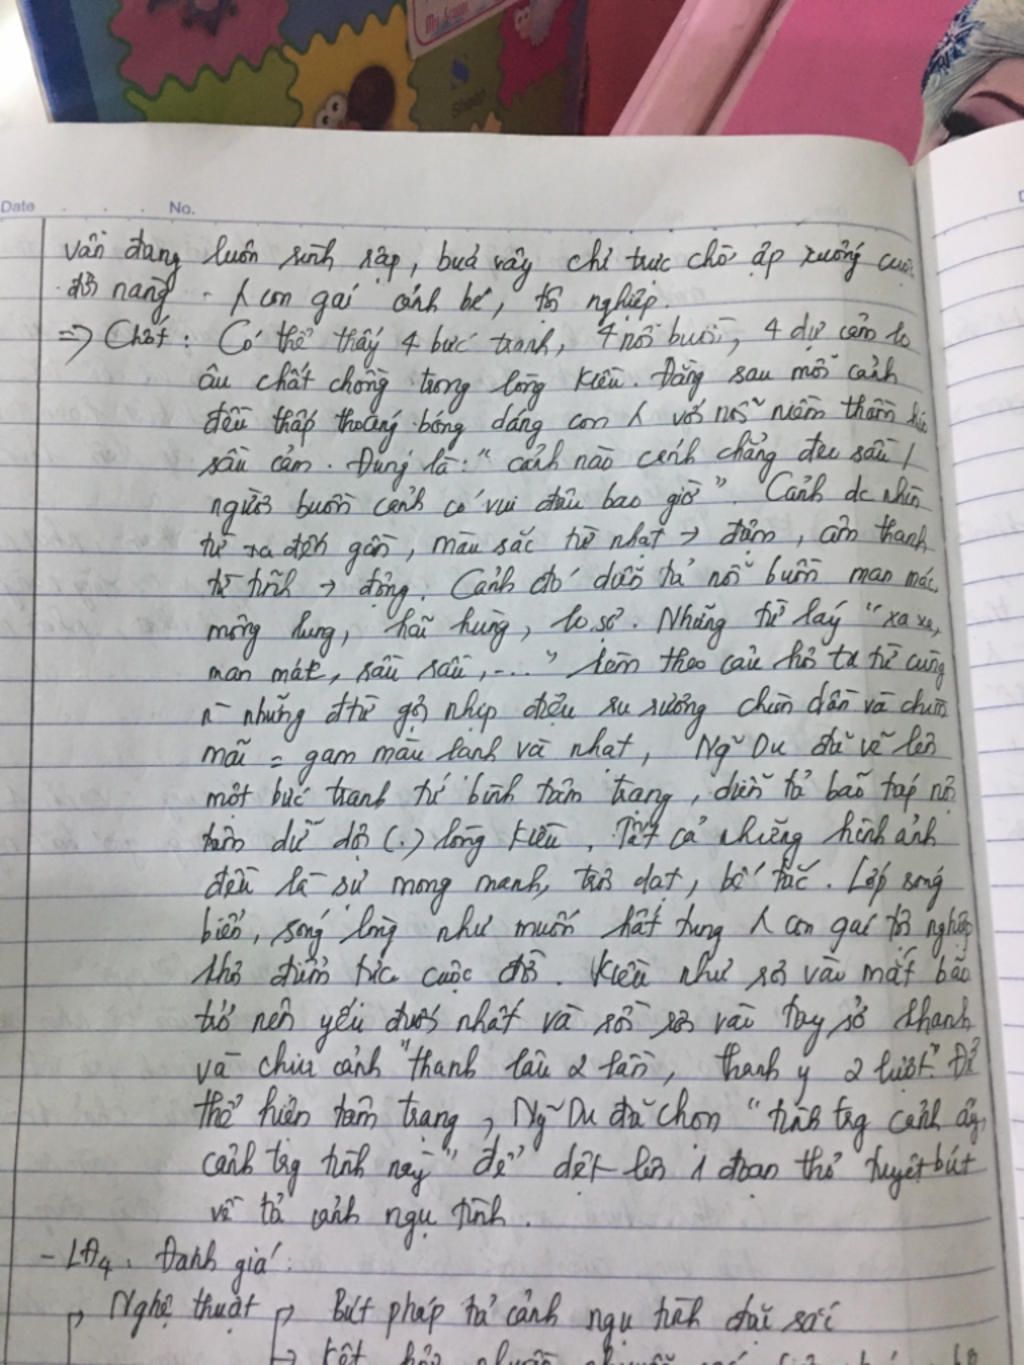 Date No.
vẫn đang luôn rình rập, bủa vây chỉ trực chờ ập xuống cuộc
đời nàng - 1 con gái bé, tội nghiệp.
=> Chốt: Có thể thấy 4 bức tranh, 4 nỗi buồn, 4 dự cảm lo
âu chất chồng trong lòng Kiều. Đằng sau mỗi cảnh
đều thấp thoáng bóng dáng con 1 với nỗi niềm thầm
sầu cảm. Đúng là: "cảnh nào cảnh chẳng đeo sầu /
người buồn cảnh có vui đâu bao giờ". Cảnh dc nhìn
từ xa đến gần, màu sắc từ nhạt -> đậm, âm thanh
từ tĩnh -> động. Cảnh đó diễn tả nỗi buồn man mác,
mông lung, hãi hùng, lo sợ. Những từ láy "xa xa,
man mác, rầu rầu,..." kèm theo câu hỏi tu từ cùng
những gợi nhịp điệu
= gam màu lạnh và nhạt, Ng~ Du đã vẽ lên
một bức tranh tứ bình tâm trạng, diễn tả bão táp nội
tâm dữ dội (.) lòng Kiều. Tất cả những hình ảnh
đều là sự mong manh, trôi dạt, bế tắc. Lớp sóng
biển, sóng lòng như muốn hất tung 1 con gái tội nghiệp
cuộc đời. Kiều như rơi vào mắt bão
trở nên yếu đuối nhất và rồi rơi vào tay sở khanh
và chịu cảnh "thanh lâu 2 lần, thanh y 2 lượt". Để
thể hiện tâm trạng, Ng~ Du đã chọn "tình trg cảnh ấy,
cảnh trg tình này" để dệt lên 1 đoạn thơ tuyệt bút
về tả cảnh ngụ tình.
- LĐ4: Đánh giá:
Nghệ thuật Bút pháp tả cảnh ngụ tình đặc sắc
kết hợp nhuần nhuyễn
My
Sheep